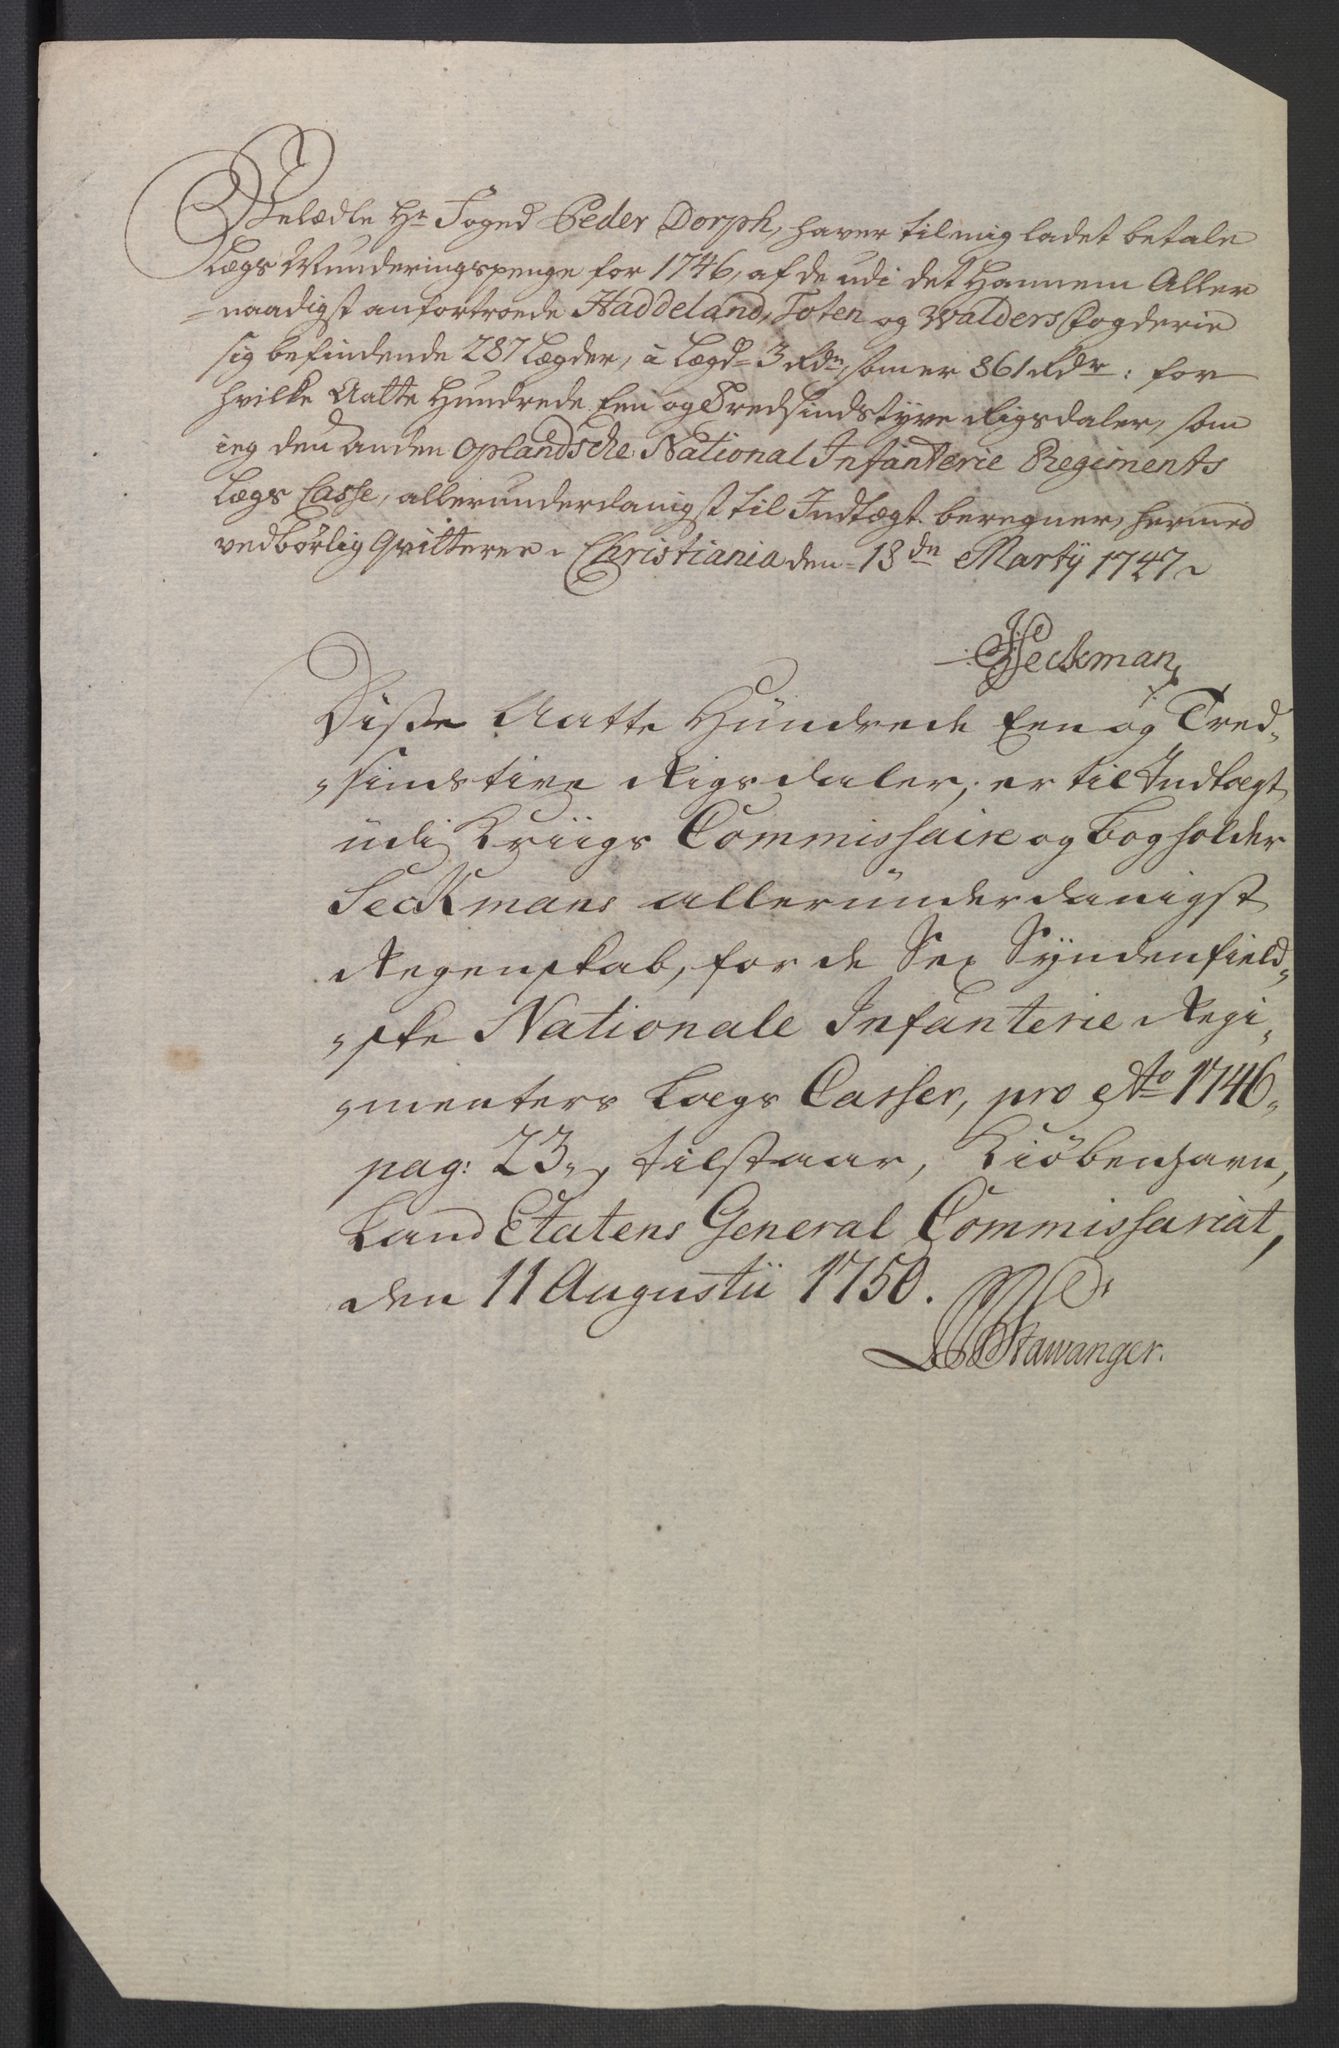 Velædle Hr Foged Peder Dorph, haver til mig ladet betale
Lægs Munderingspenge for 1746, af de udi det Hannem Aller
=naadigst anfortroede Haddeland, Toten og Walders Fogderie
sig befindende 287 Lægder, à Lægd= 3 Rdr, som er 861 Rdr: for
hvilke Aatte Hundrede Een og Tredsindstyve Rigsdaler, som
ieg den anden Oplandsche National Infanterie Regiments
Lægs Casse, allerunderdanigst til Indtægt beregner, hermed
vedbørlig Qvitterer. Christiania den= 18dn Martÿ 1747
Seckman
Disse Aatte Hündrede Een og Tred„
„sindstive Rigsdaler, er til Indtægt
üdi Kriigs Commissaire og Bogholder
Seckmans alleründerdanigst
Regenskab, for de Sex Syndenfield„
„ske Nationale Infanterie Regi„
„menters Lægs Casser, pro Ao 1746„
pag: 23„ tilstaar, Kiöbenhavn,
Land Etatens General Commissariat,
den 11 Augustii 1750.
Stawanger.